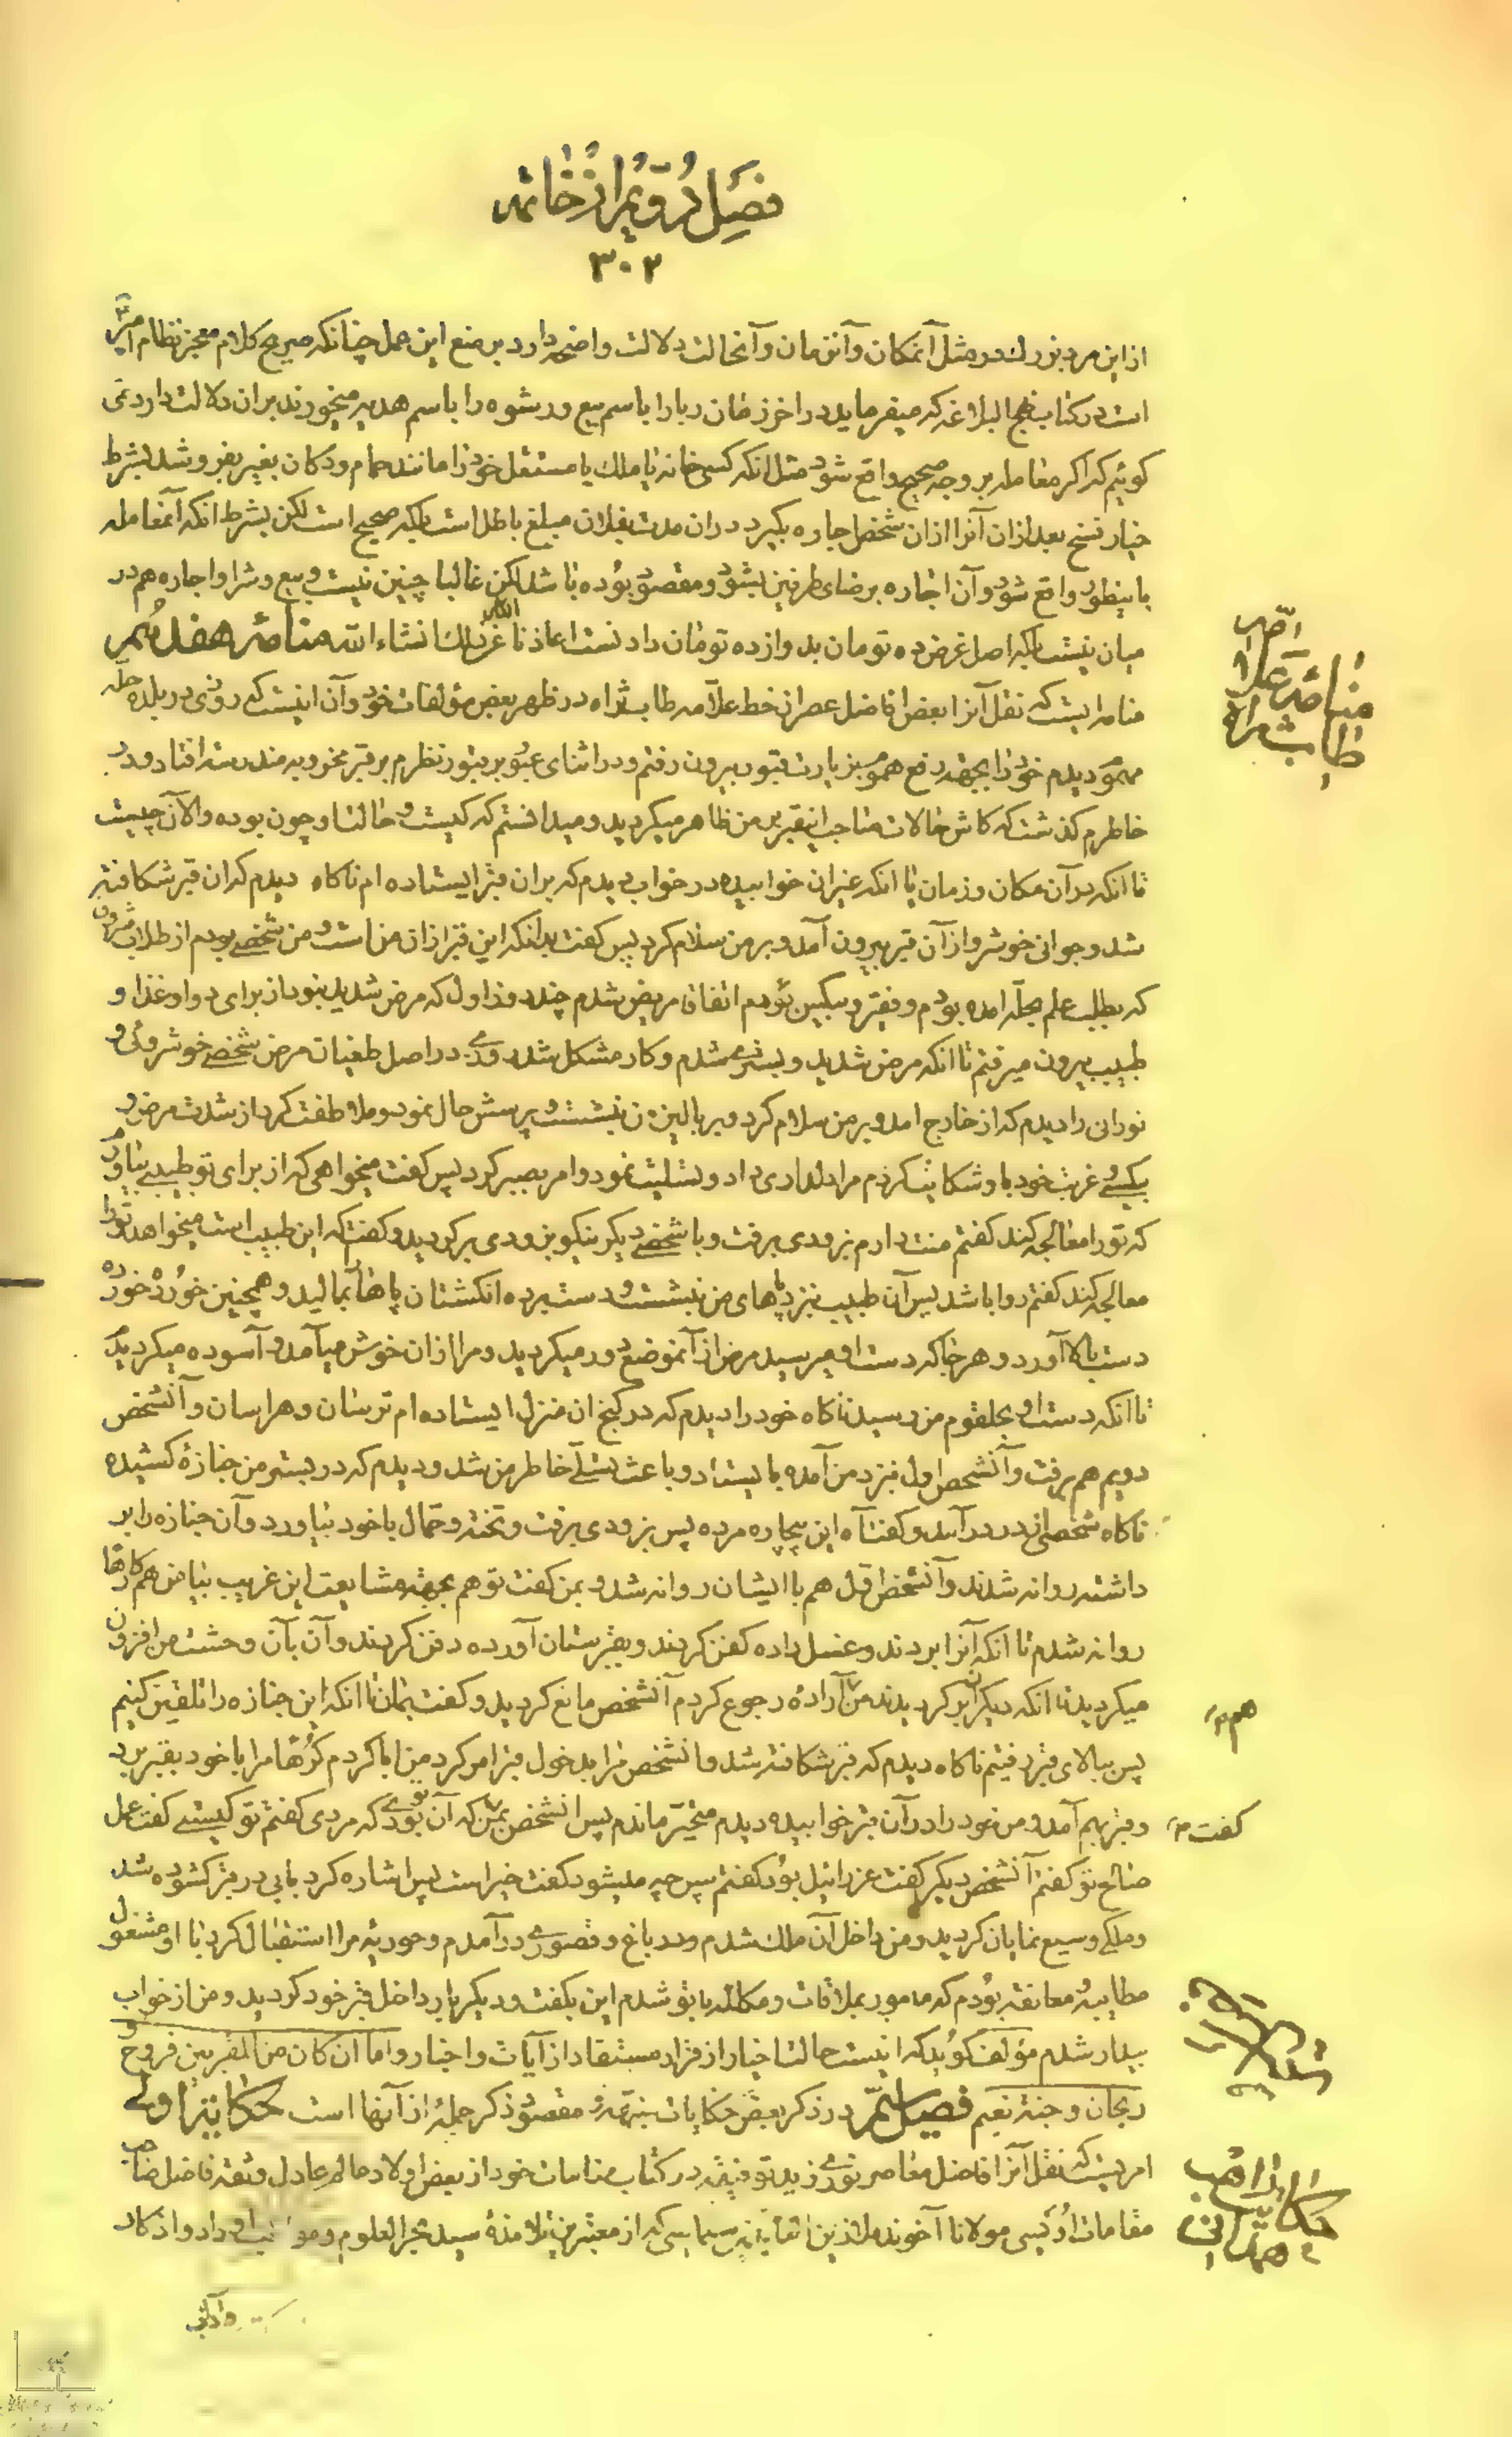 فصل دویم از خاتمه
۳۰۲
از این مرد بزرك در مثل آنمکان و آنزمان و آنحالت دلالت واضحه دارد بر منع این عمل چنانکه صریح کلام معجز نظام امیر
است در کتاب نهج البلاغه که میفرماید در اخر زمان ربا را باسم بیع و رشوه را باسم هدیه میخورند بران دلالت دارد نمی
کوئیم که اکر معامله بر وجه صحیح واقع شود مثل انکه کسی خانه یا ملك یا مستغل خود را مانند حمام و دکان بغیر بفروشد بشرط
خیار فسخ بعد ازان آنرا ازان شخص اجاره بکیرد دران مدت بفلان مبلغ باطل است بلکه صحیح است لکن بشرط انکه آنمعامله
باینطور واقع شود و آن اجاره برضای طرفین بشود و مقصود بوده باشد لکن غالبا چنین نیست و بیع و شرا و اجاره هم در
میان نیست بلکه اصل غرض ده تومان بدوازده تومان دادنست اعاذنا عن ذلك انشاء الله منامهٔ هفدهم
منامه ایست که نقل آنرا بعض افاضل عصر از خط علامه طاب ثراه در ظهر بعض مؤلفات خود و آن اینست که روزی در بلده حله
مهموم دیدم خود را بجهة رفع هموم بزیارت قبور بیرون رفتم و در اثنای عبور بر قبور نظرم بر قبر مخروبه مندرسه افتاد و در
خاطرم کذشت که کاش حالات صاحب اینقبر بر من ظاهر میکردید و میدانستم که کیست و حالت او چون بوده و الآن چیست
تا انکه در آن مکان و زمان یا انکه غیر ان خوابیده در خواب دیدم که بران قبر ایستاده ام ناکاه دیدم که ان قبر شکافته
شد و جوانی خوشرو از آن قبر بیرون آمد و بر من سلام کرد پس کفت بدانکه این قبر ازان من است و من شخصے بودم از طلاب
که بطلب علم بحله امده بودم و فقیر و مسکین بودم اتفاقا مریض شدم چند روز اول که مرض شدید نبود از برای دوا و غذا و
طبیب بیرون میرفتم تا انکه مرض شدید و بستری شدم و کار مشکل شد روزی در اصل طغیان مرض شخصے خوشروئی و
نورانی را دیدم که از خارج امد و بر من سلام کرد و بر بالین من نشست و پرسش حال نمود و ملاطفت کرد از شدت مرض و
بیکسی و غربت خود باو شکایت کردم مرا دلداری داد و تسلیت نمود و امر بصبر کرد پس کفت میخواهی که از برای تو طبیبی بیاورم
که تو را معالجه کند کفتم منت دارم بزودی برفت و با شخصے دیکر نیکو بزودی برکردید و کفت که این طبیب است میخواهد تو را
معالجه کند کفتم روا باشد پس آن طبیب نیز د پاهای من نشست و دست برده انکشتان پاها بمالید و همچنین خورده خورده
دست بالا آورد و هر جا که دست او میرسید مرض از آنموضع دور میکردید و مرا ازان خوش میآمد و آسوده میکردید
تا انکه دست او بحلقوم من رسید ناکاه خود را دیدم که در کنج ان منزل ایستاده ام ترسان و هراسان و آنشخص
دویم هم برفت و آنشخص اول نیز د من آمده بایستاد و باعث تسلی خاطر من شد و دیدم که در بستر من جنازهٔ کشیده
ناکاه شخصی از در درآمد و کفت آه این بیچاره مرده پس بزودی برفت و تخته و حمال با خود بیاورد و آن جنازه را بر
داشته روانه شدند و آنشخص اول هم با ایشان روانه شد و بمن کفت تو هم بجهة مشایعت این غریب بیا من هم کارها
روانه شدم تا انکه آنرا بردند و غسل داده کفن کردند و بقبرستان آورده دفن کردند و آن بآن وحشت من افزون
میکردید تا انکه دیکران بر کردیدند من ارادهٔ رجوع کردم آنشخص مانع کردید و کفت بمان تا انکه این جنازه را تلقین کنیم
پس ببالای قبر رفتیم ناکاه دیدم که قبر شکافته شد و انشخص مرا بدخول قبر امر کرد من ابا کردم کرها مرا با خود بقبر برد
و قبر بهم آمد و من خود را در آن قبر خوابیده دیدم متحیر ماندم پس انشخص بمن که آن توئی که مردی کفتم تو کیستے کفت عمل
صالح تو کفتم آنشخص دیکر کفت عزرائیل بود کفتم پس چه میشود کفت خیر است پس اشاره کرد بابی در قبر کشوده شد
و ملکے وسیع نمایان کردید و من داخل آن ملك شدم و در باغ و قصوری درآمدم و حوریهٔ مرا استقبال کرد با او مشغول
مطایبه و معانقه بودم که مامور بملاقات و مکالمه با تو شدم این بکفت و دیکر بار داخل قبر خود کردید و من از خواب
بیدار شدم مؤلف کوید که اینست حالت اخیار از قرار مستفاد از آیات و اخبار و اما ان کان من المقربین فروح و
ریحان و جنة نعیم فصل سیم در ذکر بعض حکایات متفرقه و مقصود ذکر جملهٔ از آنها است حکایت اولی
امریست که نقل آنرا فاضل معاصر نوری زید توفیقه در کتاب منامات خود از بعض اولاد عالم عادل و ثقه فاضل صاحب
مقامات اویسی مولانا آخوند ملا زین العابدین سلماسی که از معتبرین تلامذهٔ سید بحر العلوم و او داد و اذکار
منامهٔ علامه
طاب ثراه
هم
کفت
حکایت